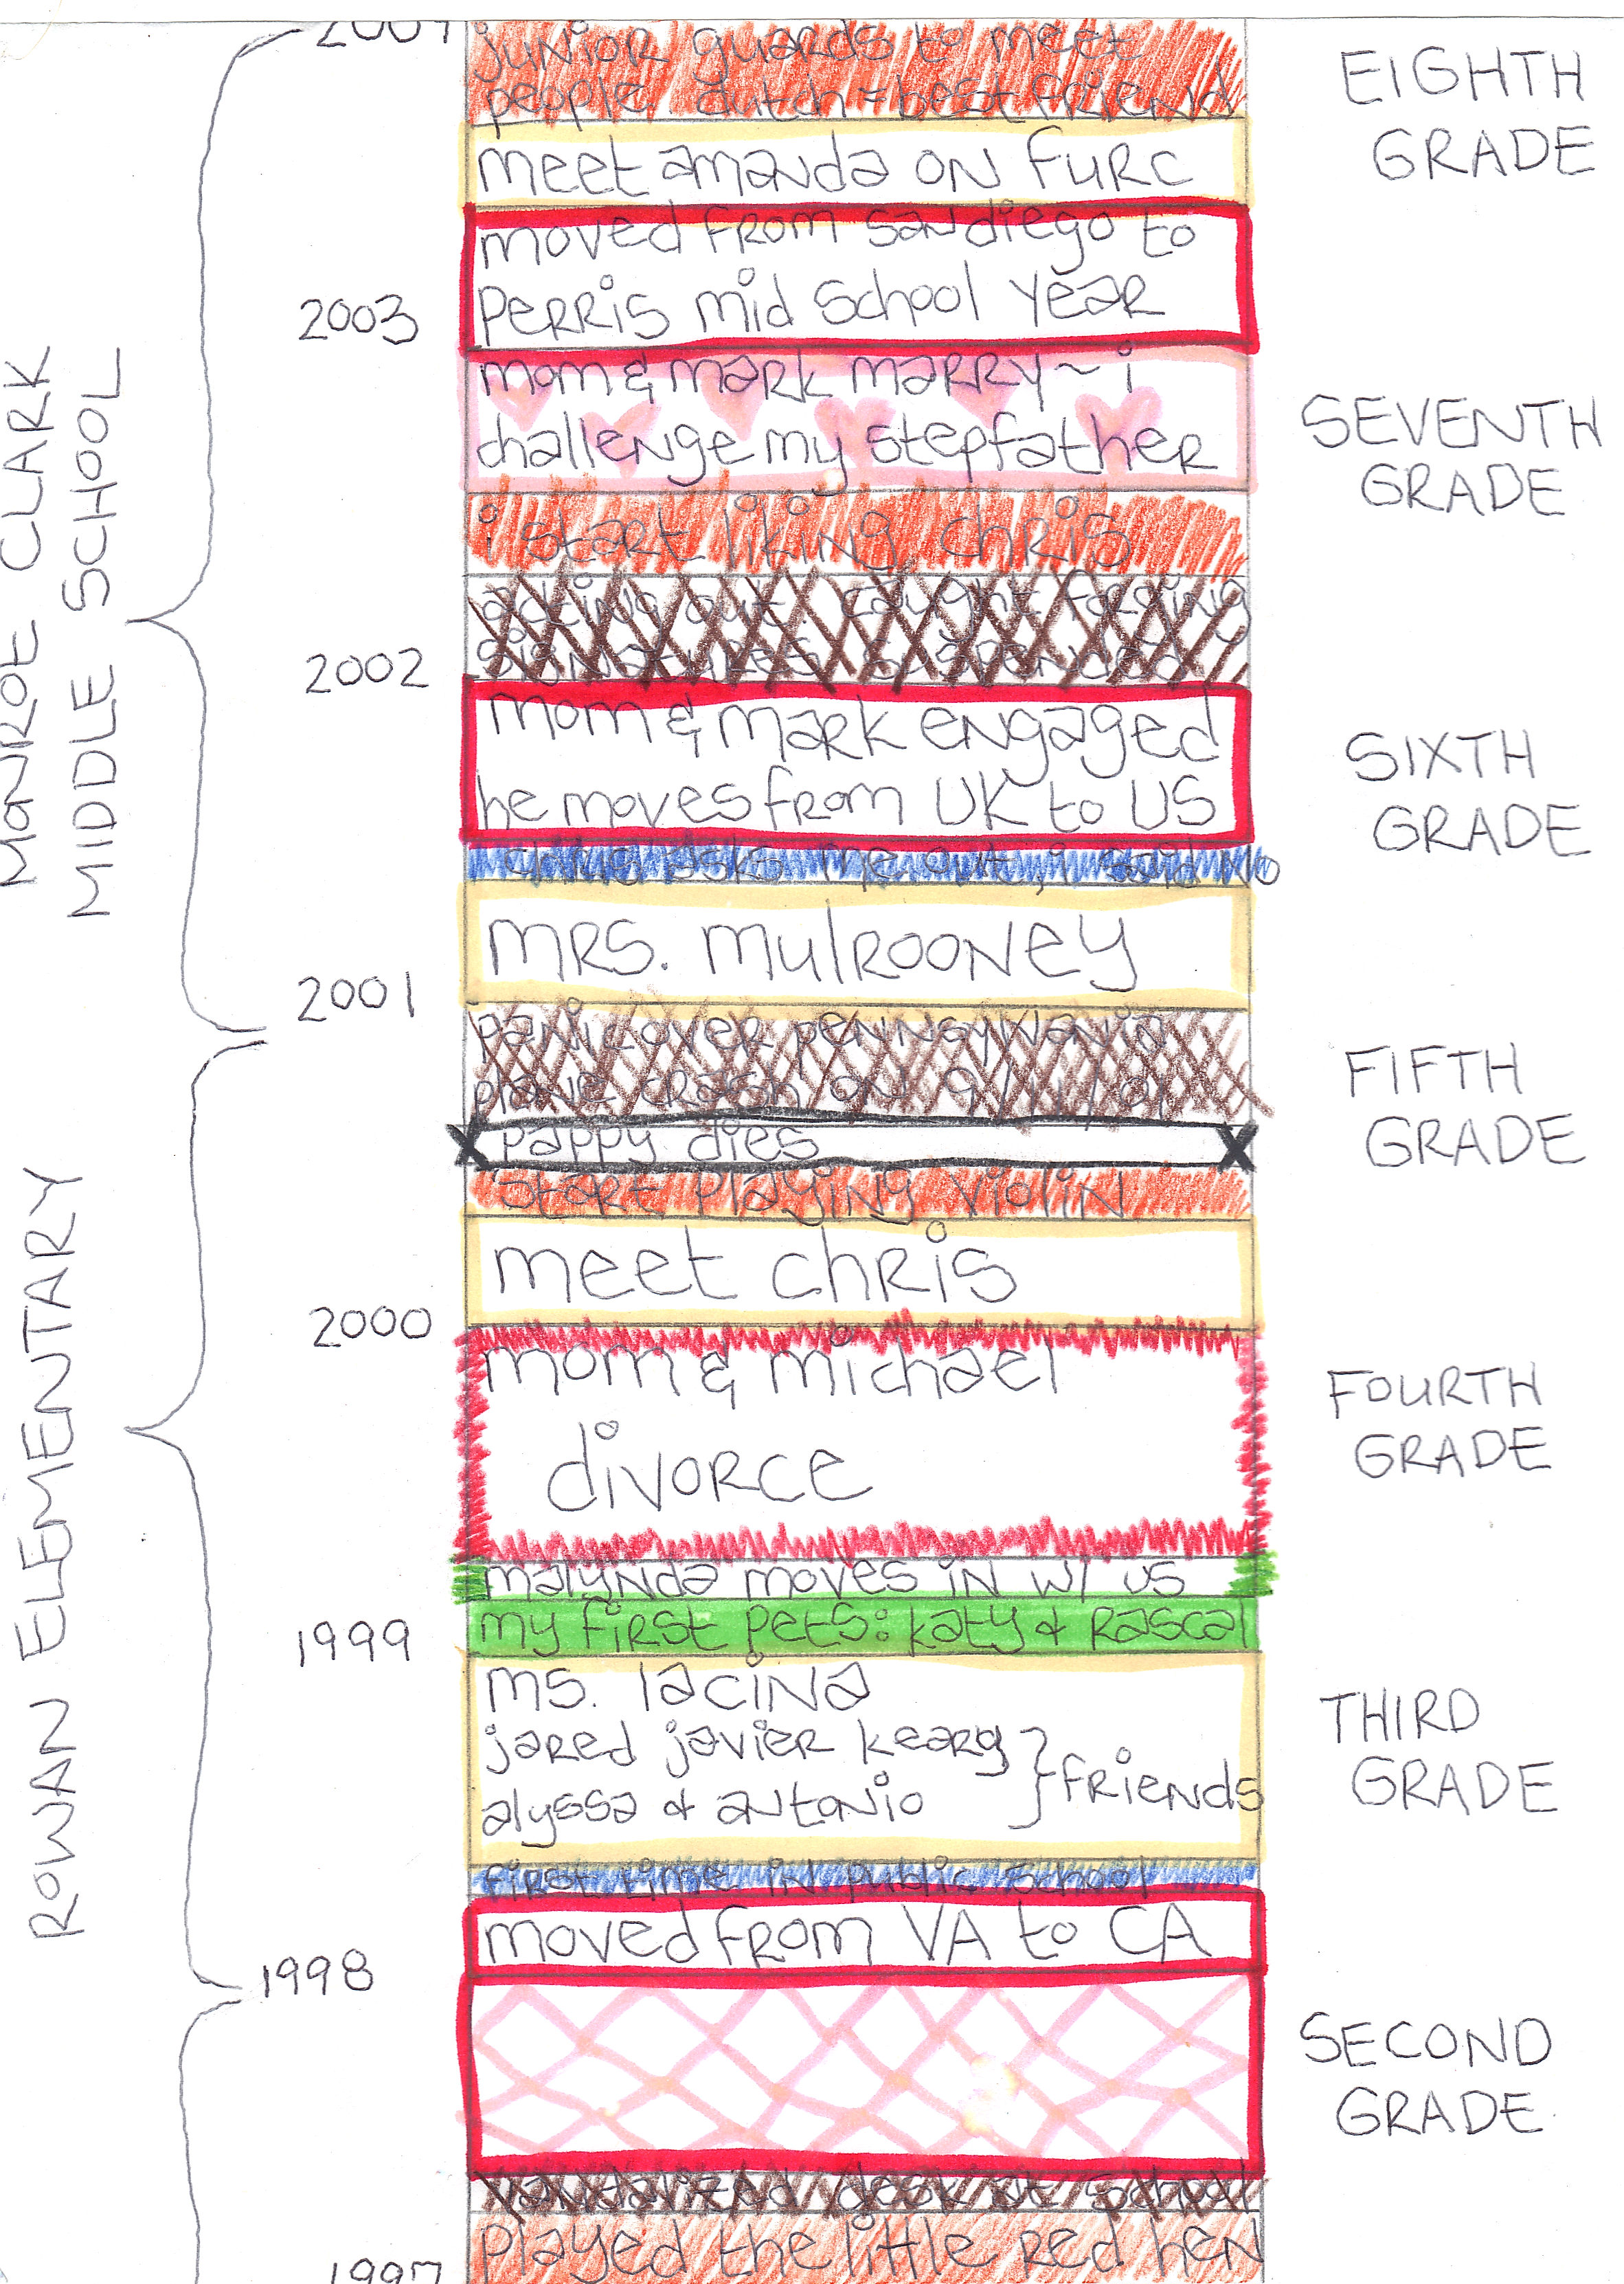 2004
junior guards to meet
people. dutch = best friend
EIGHTH
GRADE
meet amanda on furc
moved from san diego to
perris mid school year
2003
mom & mark marry ~ i
challenge my stepfather
SEVENTH
GRADE
i start liking chris
acting out. caught forging
signatures. suspended
2002
mom & mark engaged
he moves from UK to US
SIXTH
GRADE
chris asks me out, i said no
mrs. mulrooney
2001
MONROE CLARK
MIDDLE SCHOOL
panic over pennsylvania
plane crash on 9/11/01
FIFTH
GRADE
pappy dies
start playing violin
meet chris
2000
mom & michael
divorce
FOURTH
GRADE
malynda moves in w/ us
my first pets: katy & rascal
1999
ms. lacina
jared javier kearg
alyssa & antonio
friends
THIRD
GRADE
first time in public school
moved from VA to CA
1998
ROWAN ELEMENTARY
SECOND
GRADE
vandalized desk at school
played the little red hen
1997